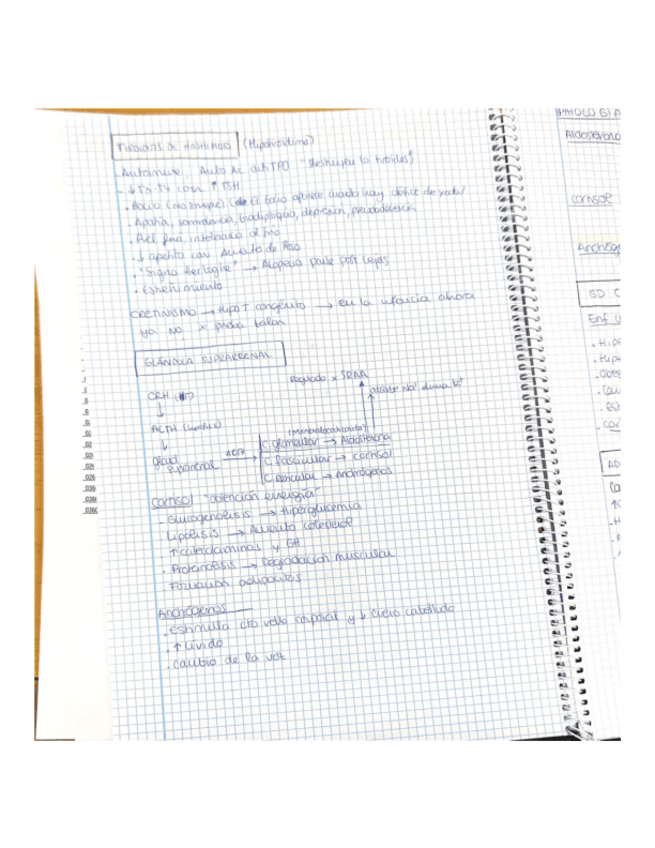 TIROIDITIS DE HASHIMOTO (Hipotiroidismo)
- Autoinmune, Auto Ac antiTPO "destruyen la tiroides"
- ↓T3-T4 con ↑ TSH
• Bocio (no siempre) (El bocio aparece cuando hay déficit de yodo)
• Apatía, somnolencia, bradipsiquia, depresión, pseudodemencia
• Piel fina, intolerancia al frío
• ↓ apetito con Aumento de Peso
• "Signo Hertoghe" → Alopecia parte post cejas
• Estreñimiento
CRETINISMO → Hipo T congénito → en la infancia ahora
ya no x prueba talón
GLÁNDULA SUPRARRENAL
Regulado x SRAA
CRH
absorbe Na+ elimina K+
ACTH
(Mineralocorticoide)
C. glomerular → Aldosterona
gland suprarrenal ACTH → C fascicular → cortisol
C reticular → Andrógenos
Cortisol "obtención energía"
- Glucogenolisis → Hiperglucemia
Lipolisis → Aumento colesterol
• ↑catecolaminas y GH
• Proteinolisis → Degradación muscular
Formación adipocitos
Andrógenos
• Estimula cto vello corporal y ↓ cuero cabelludo
• ↑ líbido
• cambio de la voz
Aldosterona
cortisol